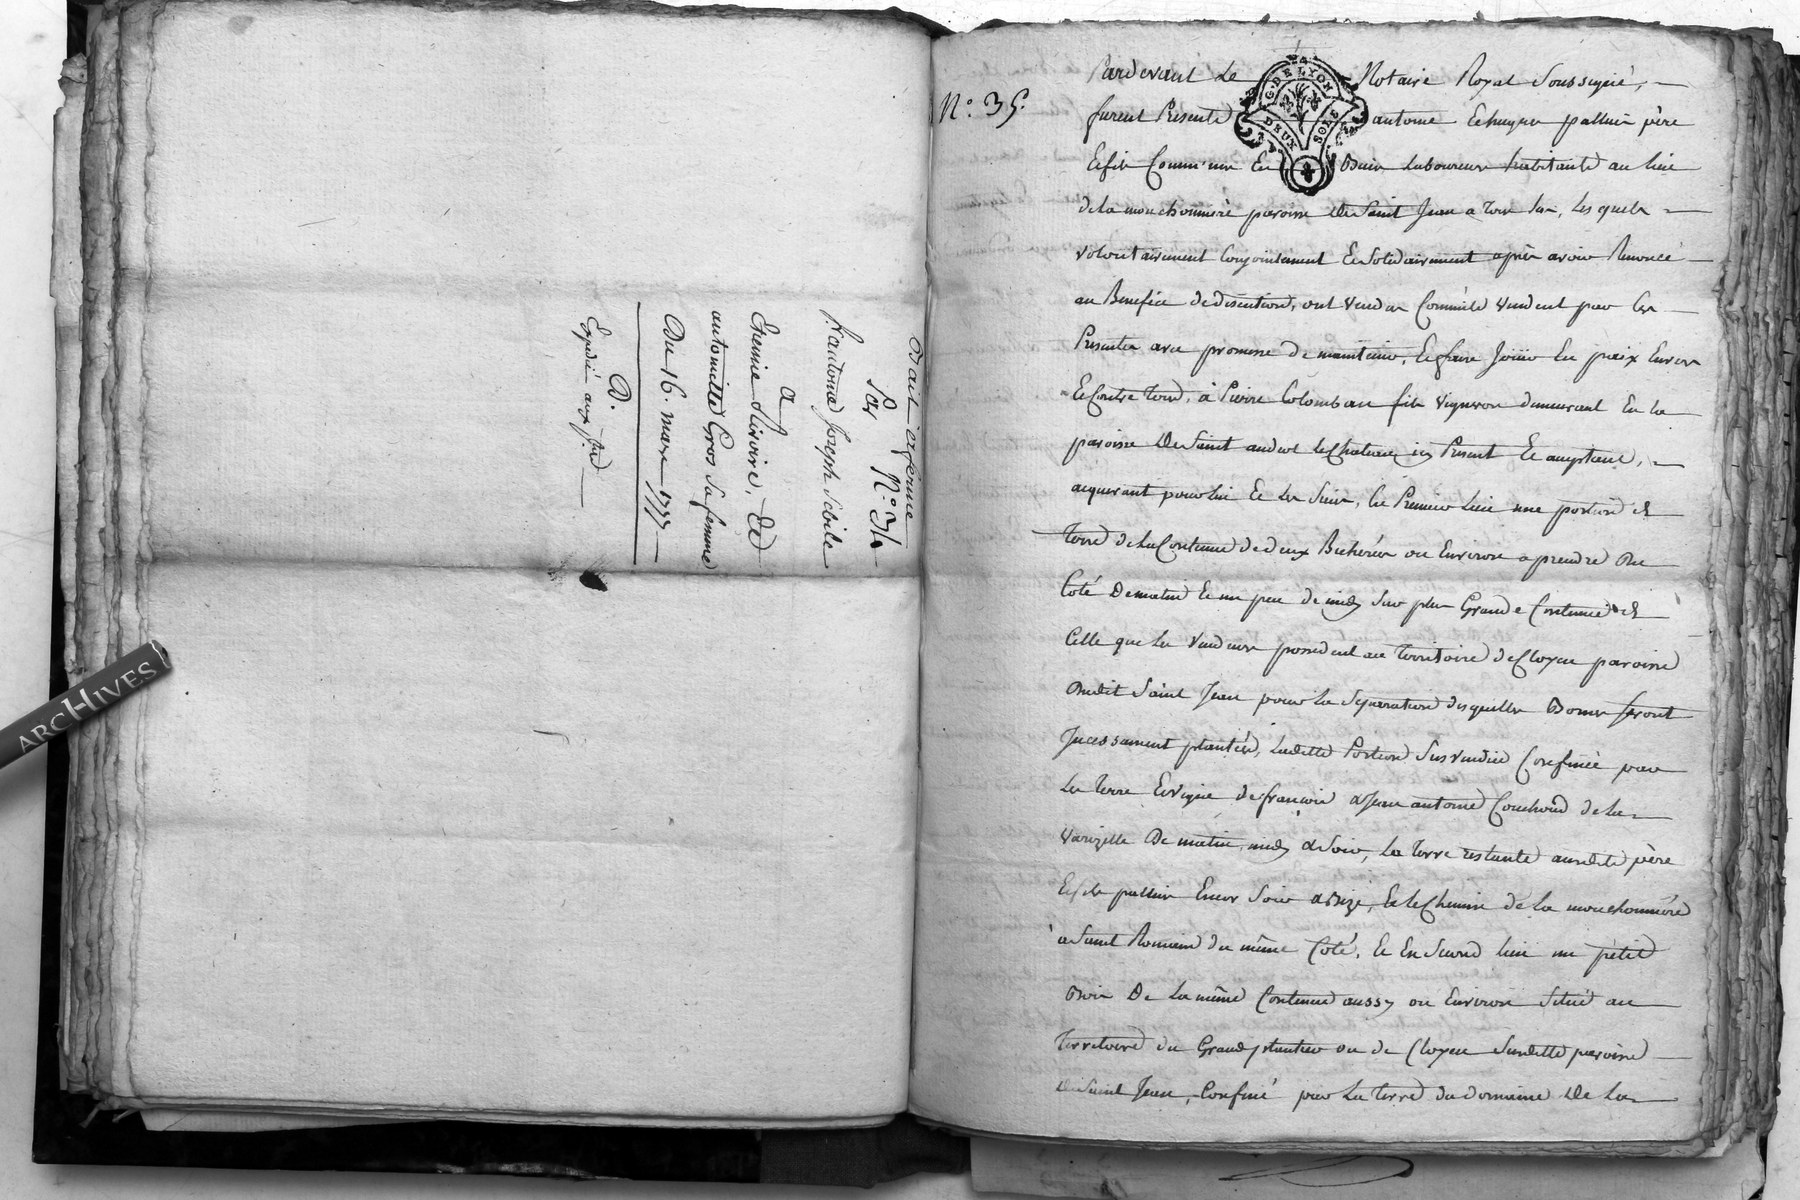 Bail a ferme
Par N.° 34
Antoine Joseph Sibille
a
Etienne Rivoire, Et
antoinette Gros sa femme
Du 16. mars 1777
D.
Expedié aux
ARCHIVES
N.° 35.
G. DE LYON
DEUX SOLS
Pardevant Le Notaire Royal Soussigné,
furent Presents antoine Ethugue palluis père
Et fils Laboureurs habitants au lieu
de la mouchonniere paroisse De Saint Jean a Tou las, Lesquels
volontairement Conjointement Et Solidairement après avoir Renoncé
au Benefice de discution, ont vendu Comme ils vendent par Ces
Presentes avec promesse De maintenir, Et faire Joüir En paix Envers
Et Contre Tous, à Pierre Colomban fils vigneron demeurant En la
paroisse De Saint andeol Le Chateau icy Present Et acceptant,
acquerant pour lui Et Les Siens, En Premier lieu une portion de
Terre de la Contenue de deux Bicherées ou Environ a prendre Du
Coté De matin Et un peu de midy Sur plus Grande Contenue de
Celle que Les Vendeurs possedent au Territoire de Cloyeu paroisse
Dudit Saint Jean pour la Separation desquelles Bornes Seront
Incessament plantées, Ladite Portion Sus vendue Confinée par
La Terre Et vigne de françois & Jean antoine Couchoud de la
Varizelle De matin, midy & Soir, La Terre restante auxdits père
Et fils palluis Encor Soir & Bize, Et Le Chemin de la mouchonniére
à Saint Romain du même Coté, Et En Second lieu un petit
Bois De la même Contenue aussy ou Environ Situé au
Territoire du Grand plantier ou de Cloyeu Susdite paroisse
De Saint Jean, Confiné par La Terre du domaine De La